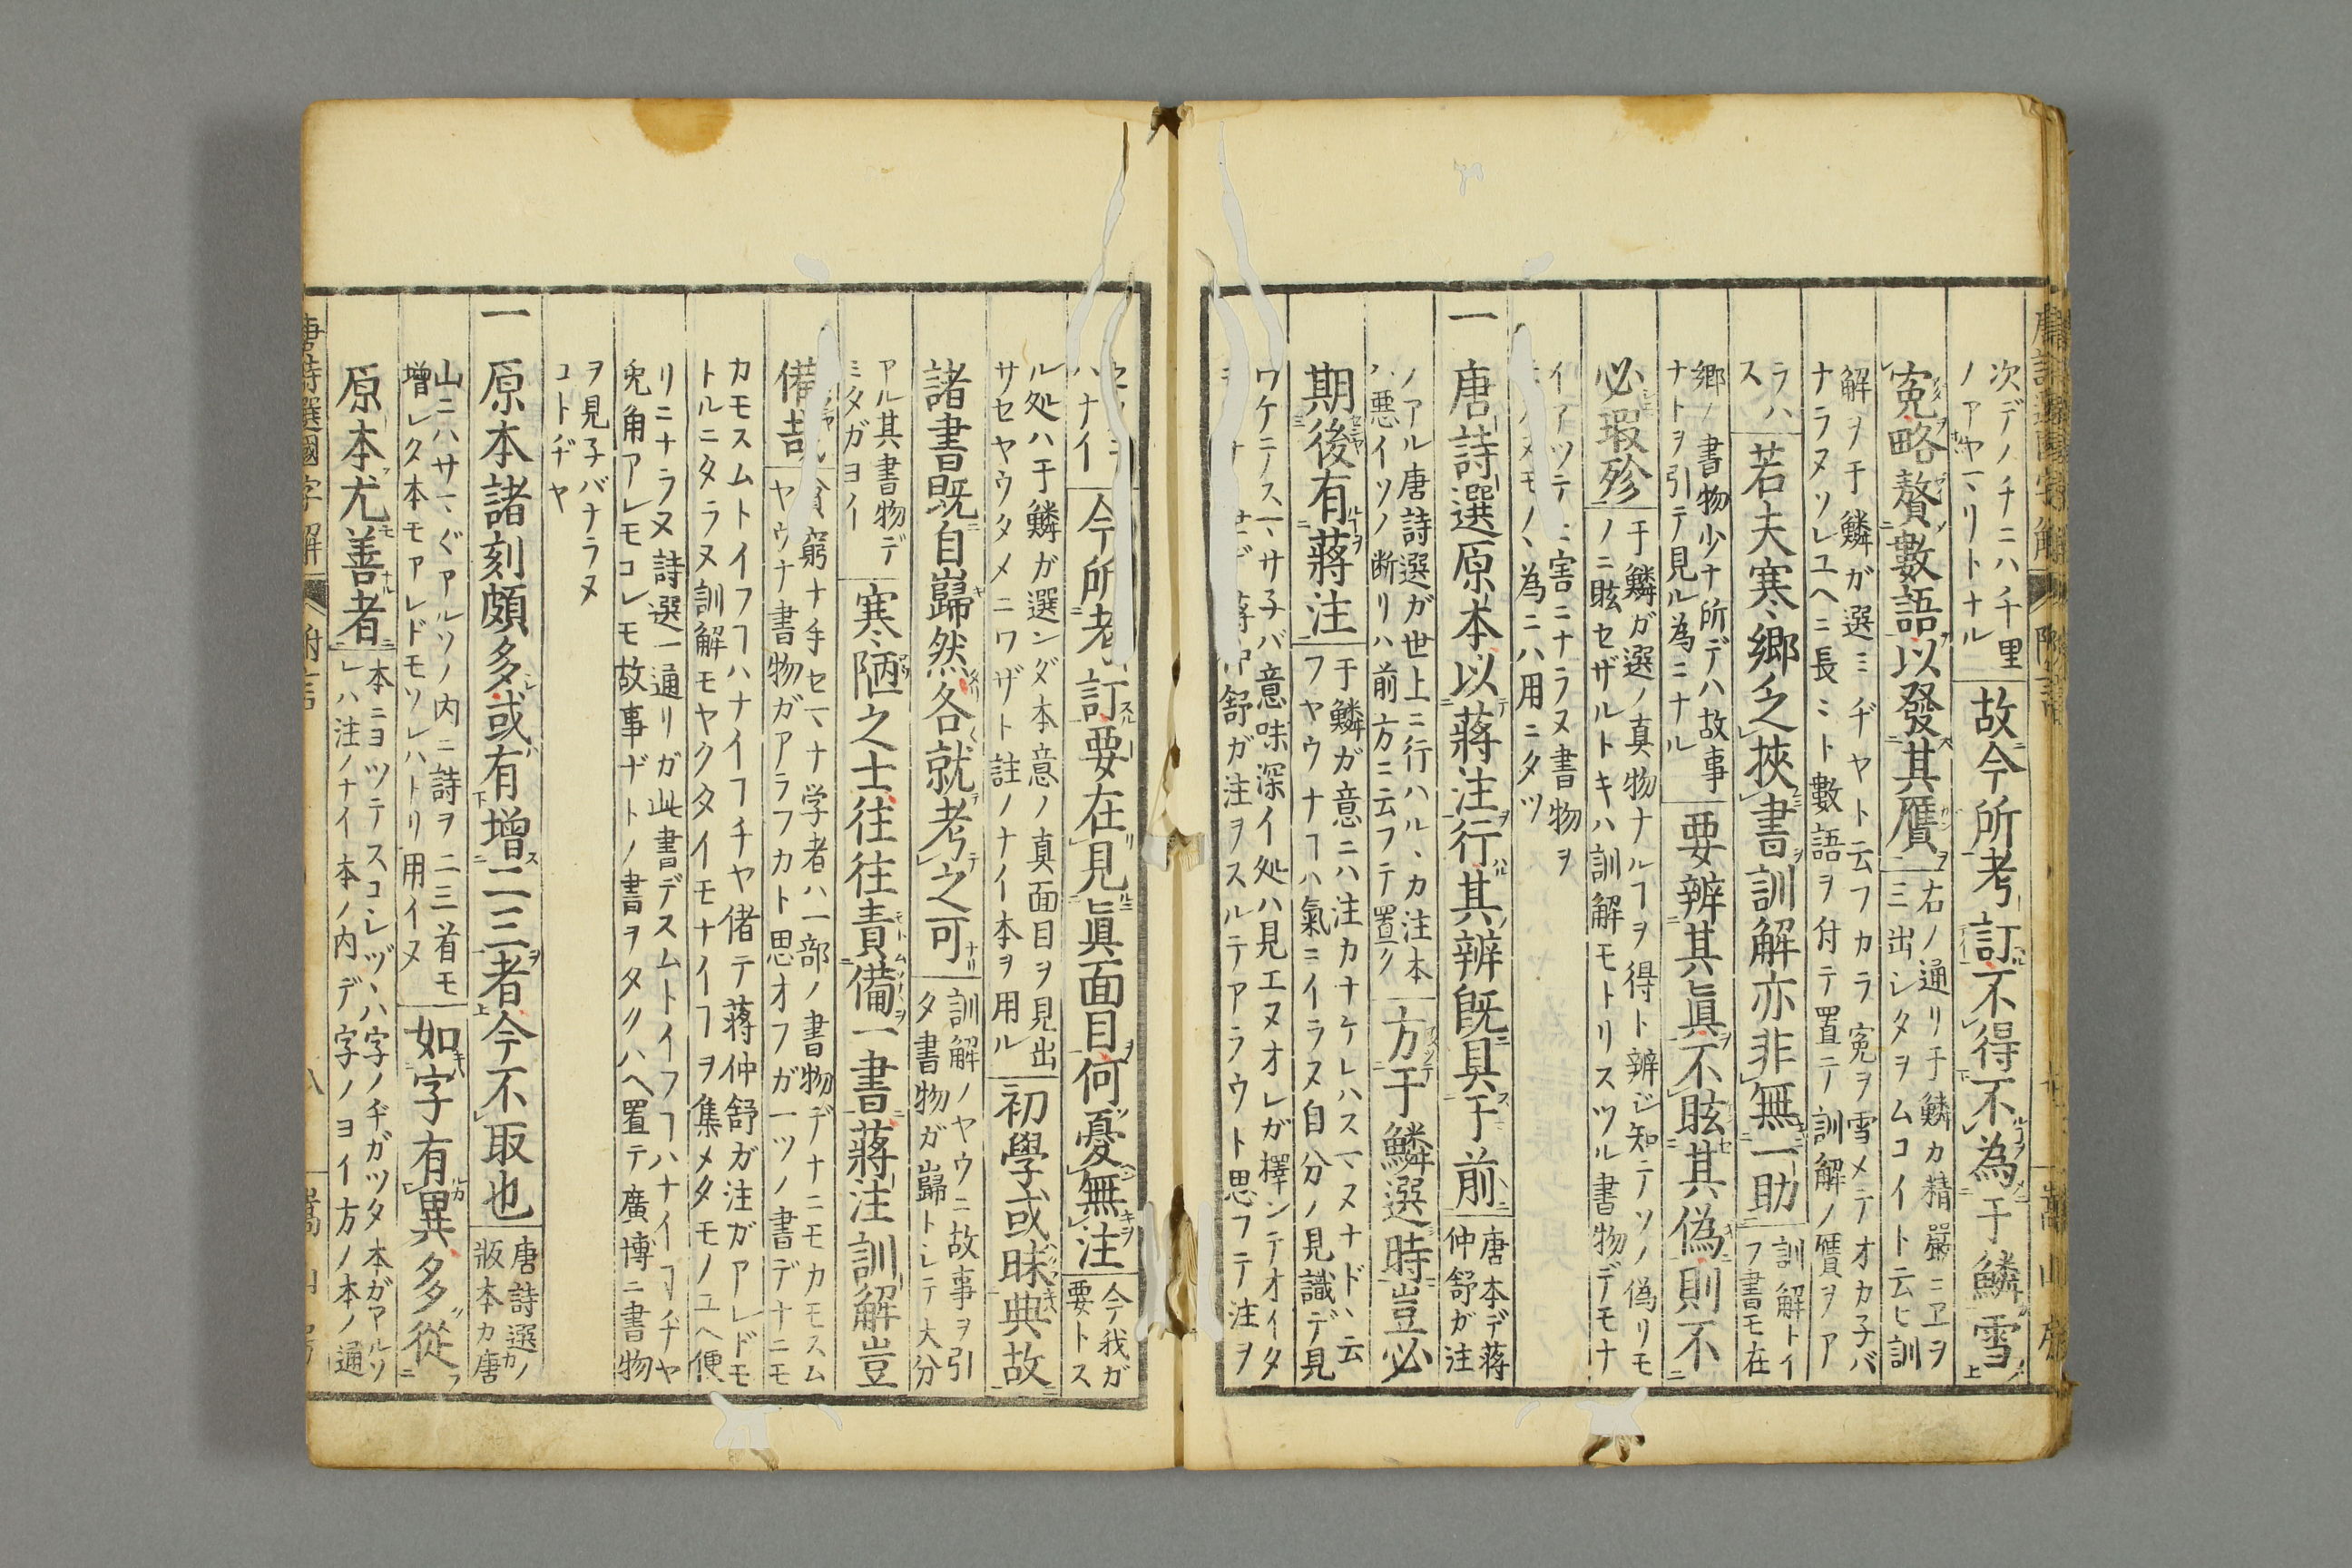 次デノチニハ千里
ノアヤマリトナル
故今所考訂不得不為于鱗雪
寃略贅數語以發其贋
右ノ通リ于鱗カ精嚴ニヱヲ
三出シタヲムコイト云ヒ訓
解ヲ于鱗ガ選ミヂヤト云フカラ寃ヲ雪メテオカ子バ
ナラヌソレユヘニ長ミト數語ヲ付テ置テ訓解ノ贋ヲア
ラハ
ス
若夫寒郷乏挾書訓解亦非無一助
訓解トイ
フ書モ在
郷ノ書物少ナ所デハ故事
ナトヲ引テ見ル為ニナル
要辨其眞不眩其偽則不
必瑕殄
于鱗ガ選ノ真物ナルヿヲ得ト辨ジ知テソノ偽リモ
ノニ眩セザルトキハ訓解モトリスツル書物デモナ
イアツテ害ニナラヌ書物ヲ
ヌモノ、為ニハ用ニタツ
一 唐詩選原本以蔣注行其辨既具于前
唐本デ蔣
仲舒ガ注
ノアル唐詩選ガ世上ニ行ハル、カ注本
ハ悪イソノ断リハ前方ニ云フテ置ク
方于鱗選時豈必
期後有蔣注
于鱗ガ意ニハ注カナケレハスマヌナドヽ云
フヤウナヿハ氣ニイラヌ自分ノ見識デ見
ワケテスマサ子バ意味深イ処ハ見エヌオレガ擇ンテオイタ
仲舒ガ注ヲスルテアラウト思フテ注ヲ
ハナイ
今所考訂要在見眞面目何憂無注
今我ガ
要トス
ル処ハ于鱗ガ選ンダ本意ノ真面目ヲ見出
サセヤウタメニワザト註ノナイ本ヲ用ル
初學或昧典故
諸書既自巋然各就考之可
訓解ノヤウニ故事ヲ引
タ書物ガ巋トシテ大分
アル其書物デ
ミタガヨイ
寒陋之士往往責備一書蔣注訓解豈
備哉
貧窮ナ手セマナ学者ハ一部ノ書物デナニモカモスム
ヤウナ書物ガアラフカト思オフガ一ツノ書デナニモ
カモスムトイフヿハナイヿチヤ偖テ蔣仲舒ガ注ガアレドモ
トルニタラヌ訓解モヤクタイモナイヿヲ集メタモノユヘ便
リニナラヌ詩選一通リガ此書デスムトイフヿハナイヿヂヤ
兔角アレモコレモ故事ナトノ書ヲタクハヘ置テ廣博ニ書物
ヲ見子バナラヌ
コトヂヤ
一 原本諸刻頗多或有增二三者今不取也
唐詩選カノ
版本カ唐
山ニハサマぐアルソノ内ニ詩ヲ二三首モ
增レタ本モアレドモソレハトリ用イヌ
如字有異多從
原本尤善者
本ニヨツテスコシヅヽハ字ノチガツタ本ガアルソ
レハ注ノナイ本ノ内デ字ノヨイ方ノ本ノ通
唐詩選國字解 附言 八